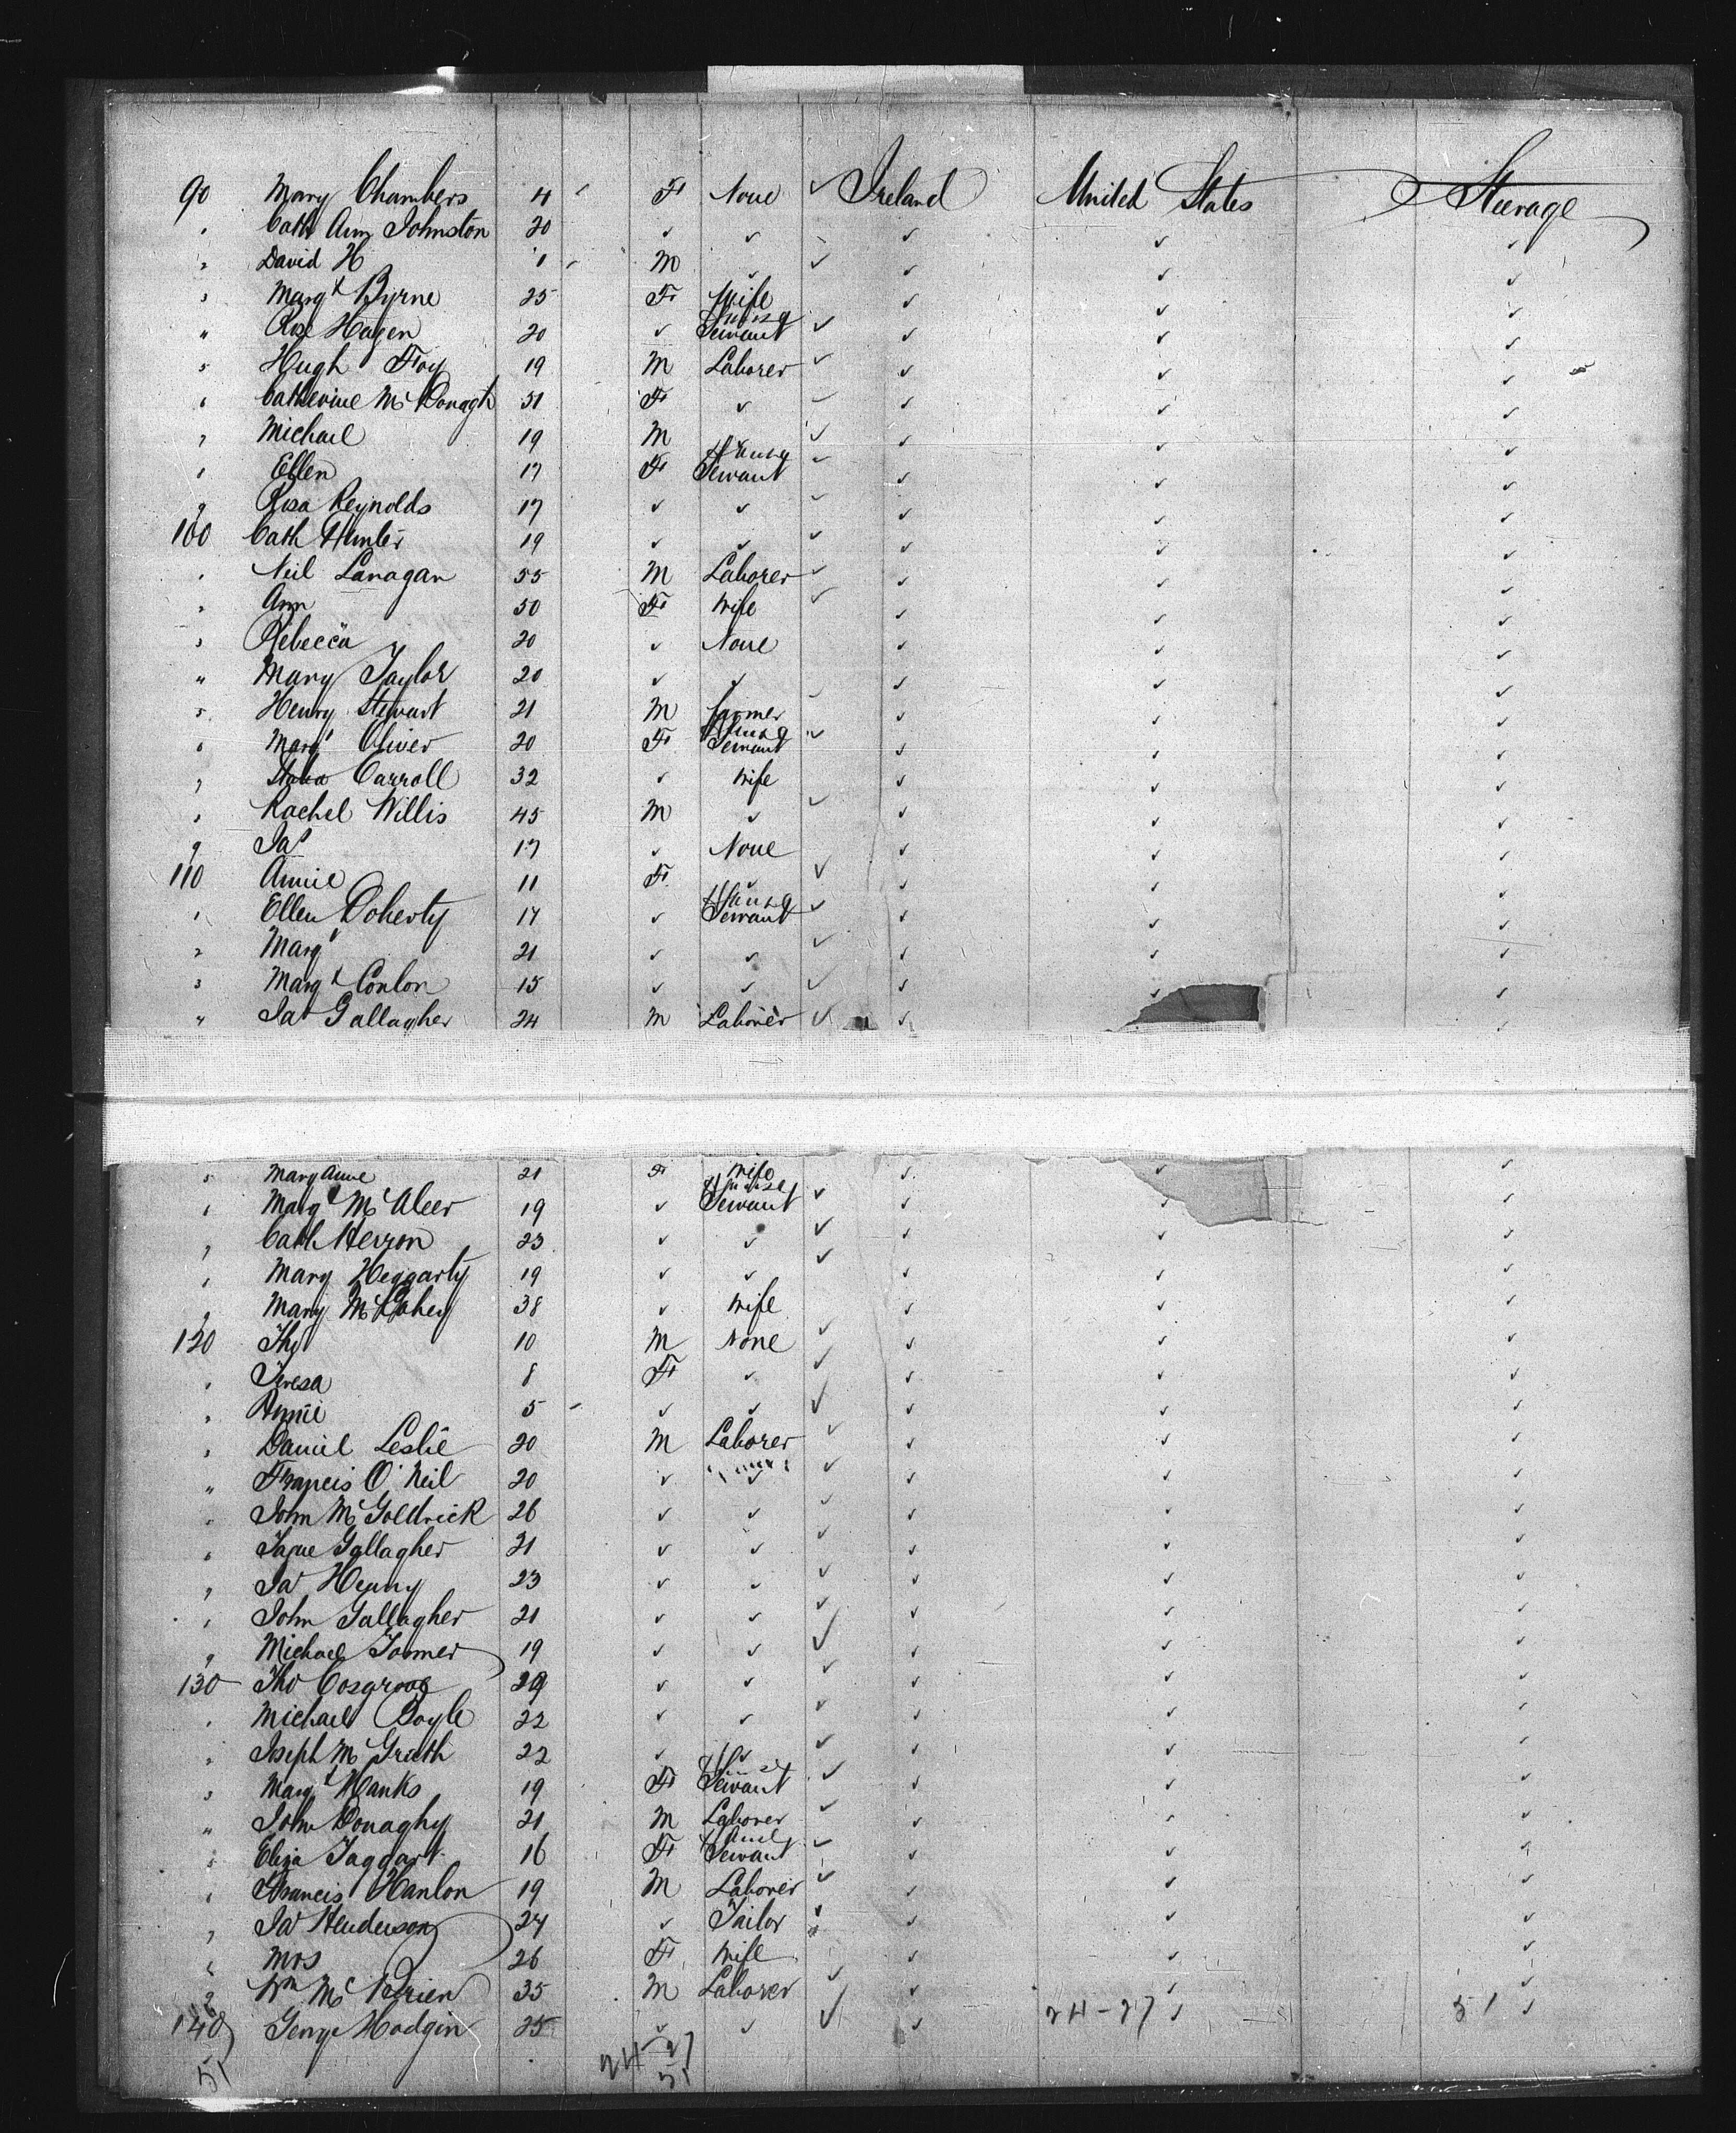 90 Mary Chambers 4 F None ✓ Ireland United States Steerage
1 Cath Ann Johnston 20 ✓ ✓ ✓ ✓ ✓
2 David H 1 M ✓ ✓ ✓ ✓ ✓
3 Margt Byrne 25 F Wife ✓ ✓ ✓
4 Rose Hagen 20 ✓ House Servant ✓ ✓ ✓ ✓
5 Hugh Foy 19 M Laborer ✓ ✓ ✓ ✓
6 Catherine McDonagh 51 F ✓ ✓ ✓ ✓ ✓
7 Michael 19 M ✓ ✓ ✓ ✓ ✓
8 Ellen 17 F House Servant ✓ ✓ ✓ ✓
9 Rosa Reynolds 17 ✓ ✓ ✓ ✓ ✓ ✓
100 Cath Hunter 19 ✓ ✓ ✓ ✓ ✓ ✓
1 Neil Lanagan 55 M Laborer ✓ ✓ ✓ ✓
2 Ann 50 F Wife ✓ ✓ ✓ ✓
3 Rebecca 20 ✓ None ✓ ✓ ✓
4 Mary Taylor 20 ✓ ✓ ✓ ✓ ✓
5 Henry Stewart 21 M Farmer ✓ ✓ ✓ ✓
6 Margt Oliver 20 F House Servant ✓ ✓ ✓ ✓
7 Carroll 32 ✓ Wife ✓ ✓ ✓
8 Rachel Willis 45 M ✓ ✓ ✓ ✓ ✓
9 Jas 17 ✓ None ✓ ✓ ✓
110 Annie 11 F ✓ ✓ ✓ ✓ ✓
1 Ellen Doherty 17 ✓ House Servant ✓ ✓ ✓ ✓
2 Margt 21 ✓ ✓ ✓ ✓ ✓ ✓
3 Margt Conlon 15 ✓ ✓ ✓ ✓ ✓ ✓
4 Jas Gallagher 24 M Laborer ✓ ✓ ✓
5 Mary Anne 21 F Wife ✓ ✓ ✓
6 Margt McAleer 19 ✓ House Servant ✓ ✓ ✓ ✓
7 Cath Herron 23 ✓ ✓ ✓ ✓ ✓ ✓
8 Mary Heggarty 19 ✓ ✓ ✓ ✓ ✓ ✓
9 Mary McGahey 38 ✓ Wife ✓ ✓ ✓
120 Ths 10 M None ✓ ✓ ✓ ✓
1 Teresa 8 F ✓ ✓ ✓ ✓ ✓
2 Annie 5 ✓ ✓ ✓ ✓ ✓ ✓
3 Daniel Leslie 20 M Laborer ✓ ✓ ✓ ✓
4 Francis O'Neil 20 ✓ ✓ ✓ ✓ ✓ ✓
5 John McGoldrick 26 ✓ ✓ ✓ ✓ ✓ ✓
6 Jane Gallagher 21 ✓ ✓ ✓ ✓ ✓ ✓
7 Jas Henry 23 ✓ ✓ ✓ ✓ ✓ ✓
8 John Gallagher 21 ✓ ✓ ✓ ✓ ✓ ✓
9 Michael 19 ✓ ✓ ✓ ✓ ✓ ✓
130 Tho Cosgrove 29 ✓ ✓ ✓ ✓ ✓ ✓
1 Michael Boyle 22 ✓ ✓ ✓ ✓ ✓ ✓
2 Joseph McGrath 22 ✓ ✓ ✓ ✓ ✓ ✓
3 Margt Hanks 19 F House Servant ✓ ✓ ✓ ✓
4 John Donaghy 21 M Laborer ✓ ✓ ✓ ✓
5 Eliza Taggart 16 F House Servant ✓ ✓ ✓ ✓
6 Francis Hanlon 19 M Laborer ✓ ✓ ✓ ✓
7 Jas Henderson 27 ✓ Tailor ✓ ✓ ✓
8 Mrs 26 F Wife ✓ ✓ ✓
9 Wm 35 M Laborer ✓ ✓ ✓ ✓
140 George Hodgin 25 ✓ ✓ ✓ ✓ 24-27 ✓ 51 ✓
51 24 27
51